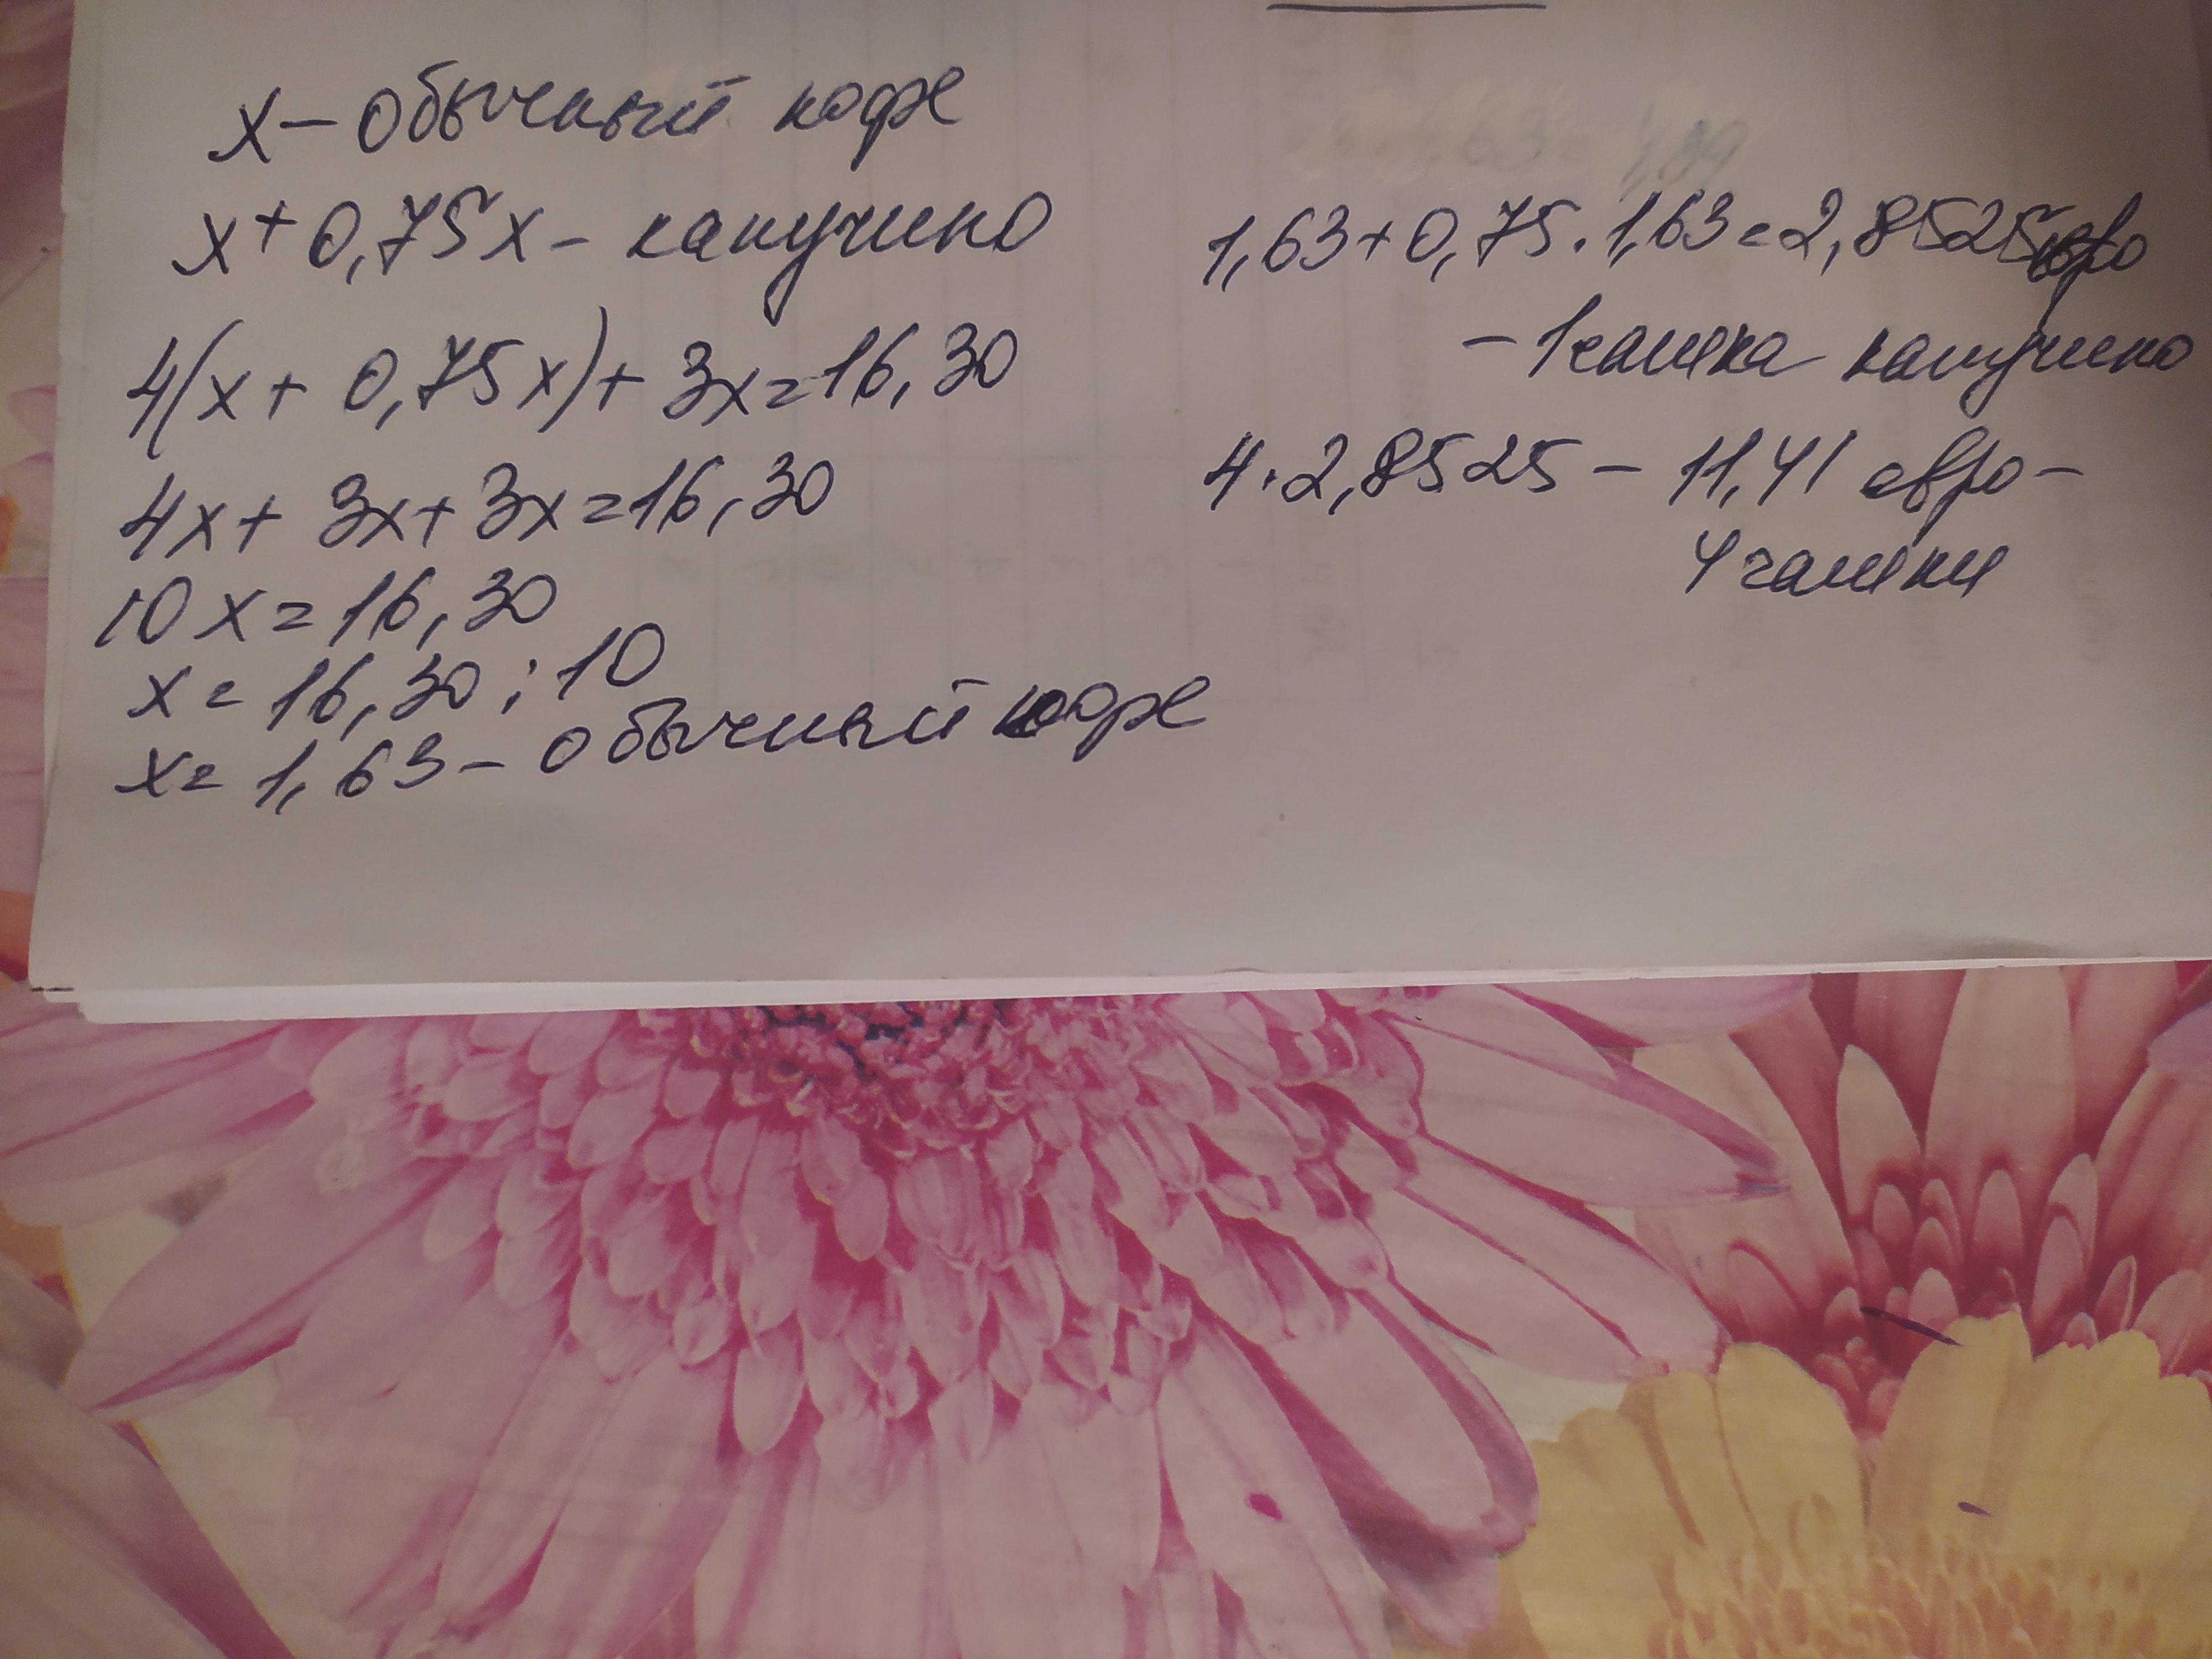 x – обычный кофе
x + 0,75x – капучино
4(x + 0,75x) + 3x = 16,30
4x + 3x + 3x = 16,30
10x = 16,30
x = 16,30 : 10
x = 1,63 – обычный кофе
1,63 + 0,75 · 1,63 = 2,8525 евро
– 1 чашка капучино
4 · 2,8525 – 11,41 евро –
4 чашки